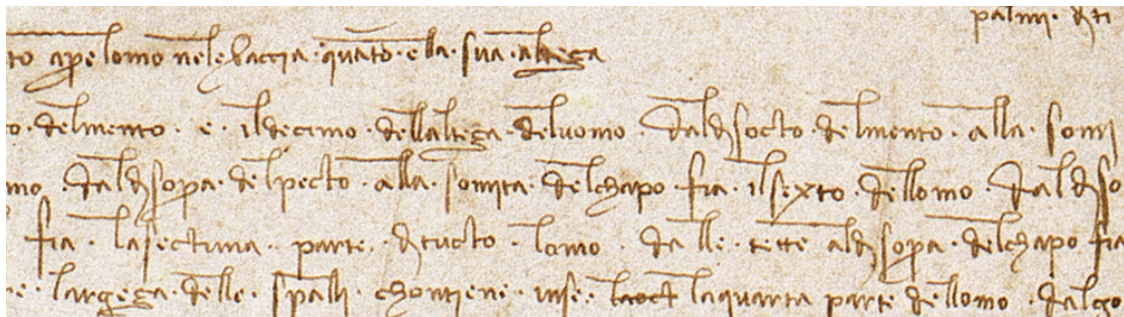 palmi · di
to apre lomo nele braccia · quāto · ella · sua · alteza
del mento · e · il decimo · dell alteza · del uomo · dal di socto · del mento · alla · somi
dal di sopra · del pecto · alla · somita · del chapo · fia · il sexto · dellomo · dal di so
fia · la sectima · parte · di tucto · lomo · dalle · tette al di sopra · del chapo fia
largeza · delle · spalli · chontiene · in se · la quarta parte dellomo · dal go